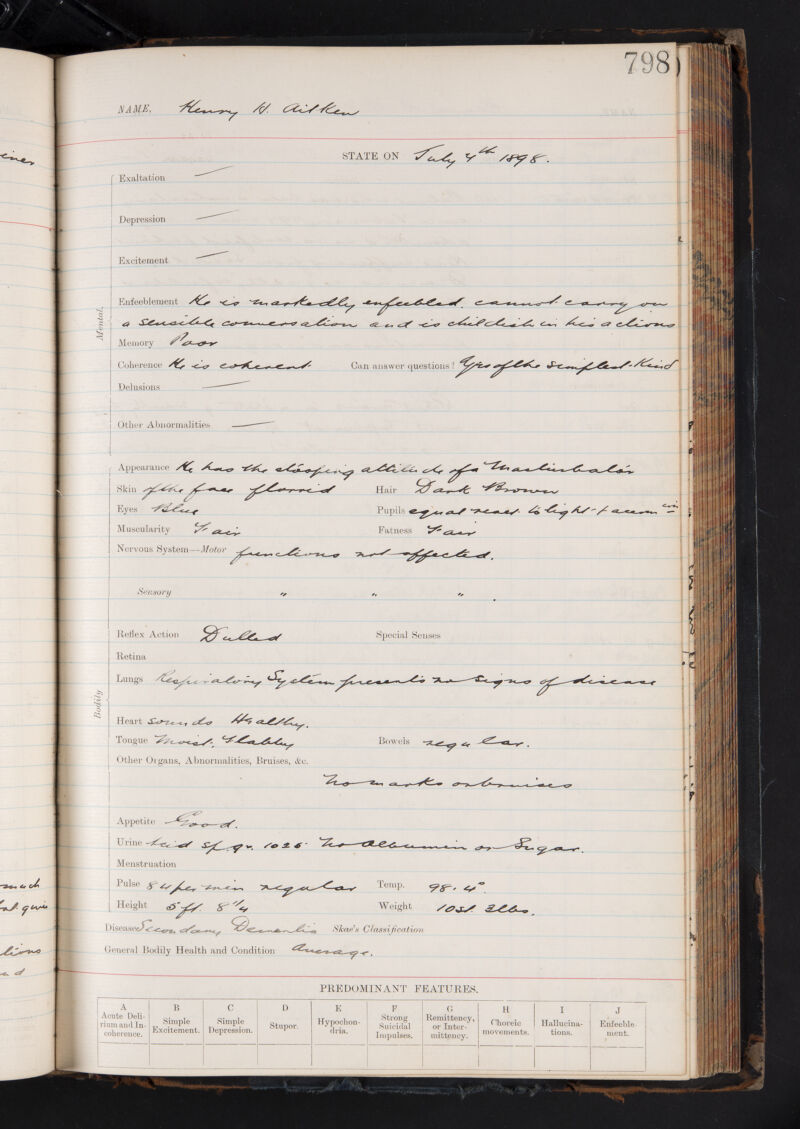 798
NAME. Henry H. Aitken
STATE ON July 4th 1898.
Exaltation —
Depression —
Excitement —
Mental.
Enfeeblement He is markedly enfeebled. cannot carry on
a sensible conversation and is childish in his actions
Memory Poor
Coherence He is coherent. Can answer questions? Yes of the simplest kind
Delusions —
Other Abnormalities —
Bodily
Appearance He has the stooping attitude of a Masturbator
Skin of the face florrid Hair Dark Brown
Eyes Blue Pupils equal react to light + accom
Muscularity Fair Fatness Fair
Nervous System—Motor functions not affected.
Sensory " " " .
Reflex Action Dulled Special Senses
Retina
Lungs Respiratory System presents no signs of disease
Heart sounds Healthy.
Tongue Moist, flabby Bowels regular.
Other Organs, Abnormalities, Bruises, &c.
No marks or bruises
Appetite Good.
Urine Acid Sp. gr. 1025 No Albumin or Sugar.
Menstruation
Pulse 84 per min regular Temp. 98.4°.
Height 5 ft. 8 1/4 Weight 10st. 3lbs.
Disease Secondary Dementia Skae's Classification
General Bodily Health and Condition Average.
PREDOMINANT FEATURES.
A B C D E F G H I J
Acute Deli-
rium and In-
coherence.
Simple
Excitement.
Simple
Depression.
Stupor.
Hypochon-
dria.
Strong
Suicidal
Impulses.
Remittency,
or Inter-
mittency.
Choreic
movements.
Hallucina-
tions.
Enfeeble-
ment.